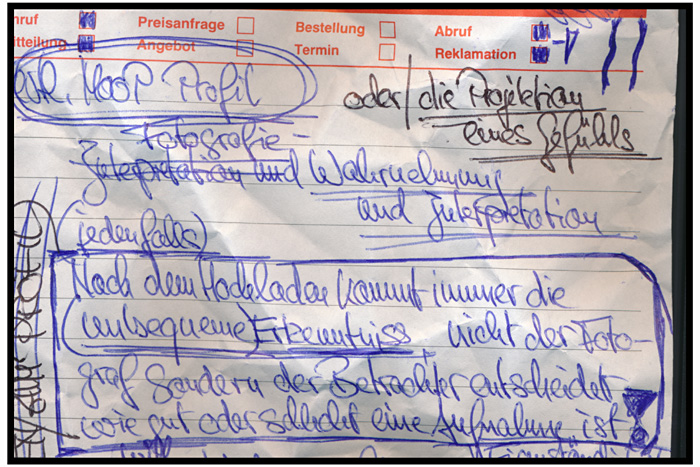 nruf Preisanfrage Bestellung Abruf
itteilung Angebot Termin Reklamation
evtl. MOOP Profil
oder die Projektion
eines Gefühls
Fotografie-
Interpretation und Wahrnehmung
und Interpretation
(jedenfalls)
Nach dem Hochladen kommt immer die
(unbequeme) Erkenntniss, nicht der Foto-
graf sondern der Betrachter entscheidet
wie gut oder schlecht eine Aufnahme ist